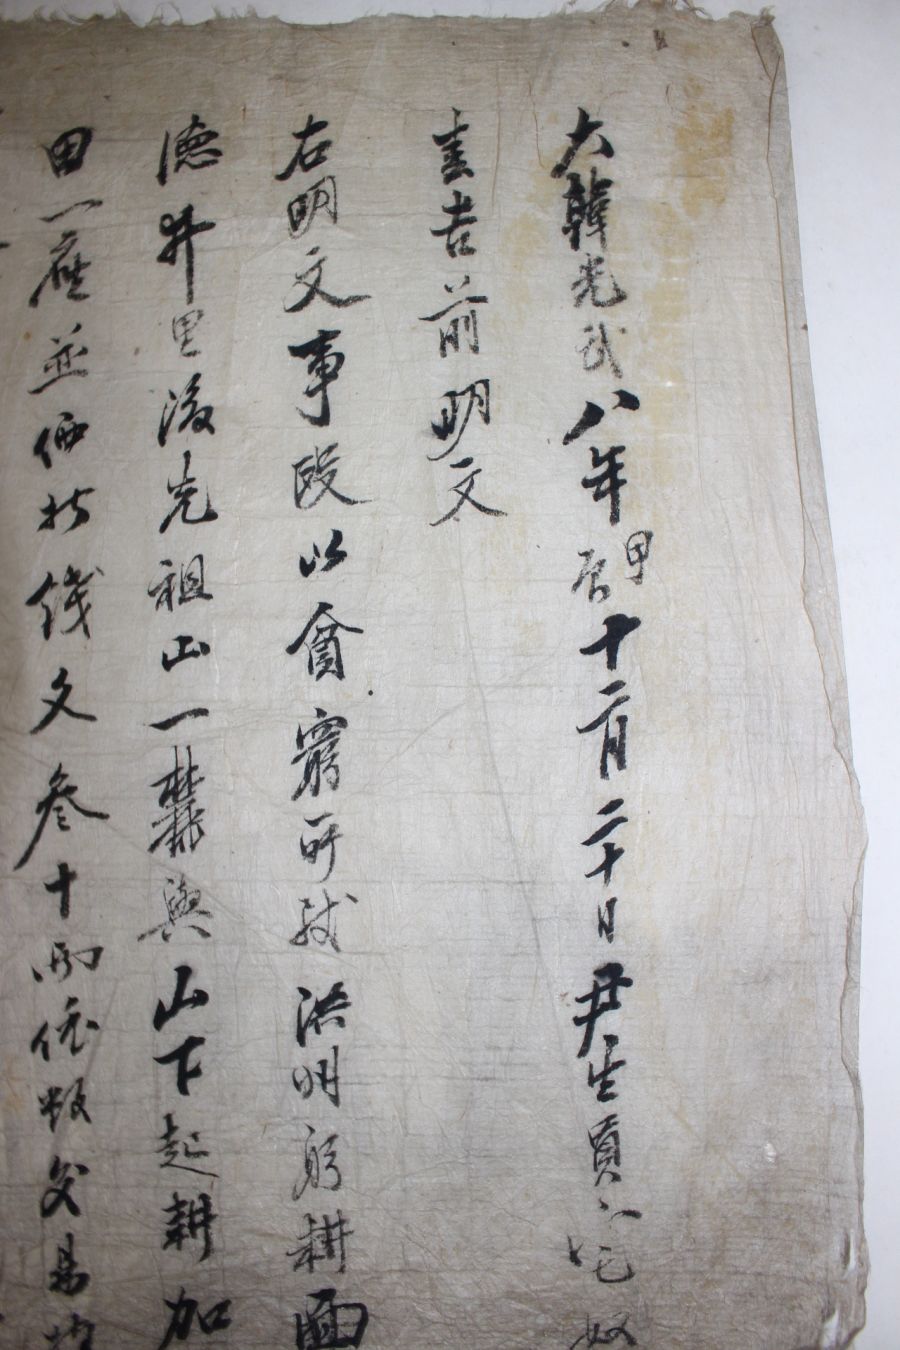 大韓光武八年甲辰十二月二十日尹生員宅奴
圭吉前明文
右明文事段以貧窮所致洪明躬耕面
德井里後先祖山一麓與山下起耕加
田一座並価折錢文叁十兩依數交易